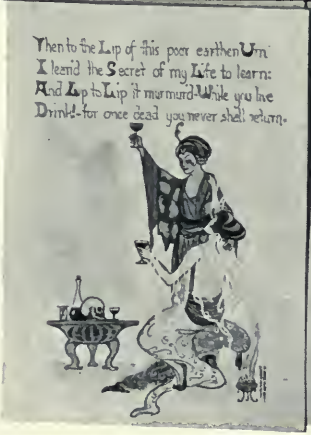 Then to the Lip of this poor earthen Urn
I lean'd the Secret of my Life to learn:
And Lip to Lip it murmur'd-While you live
Drink!-for once dead you never shall return.